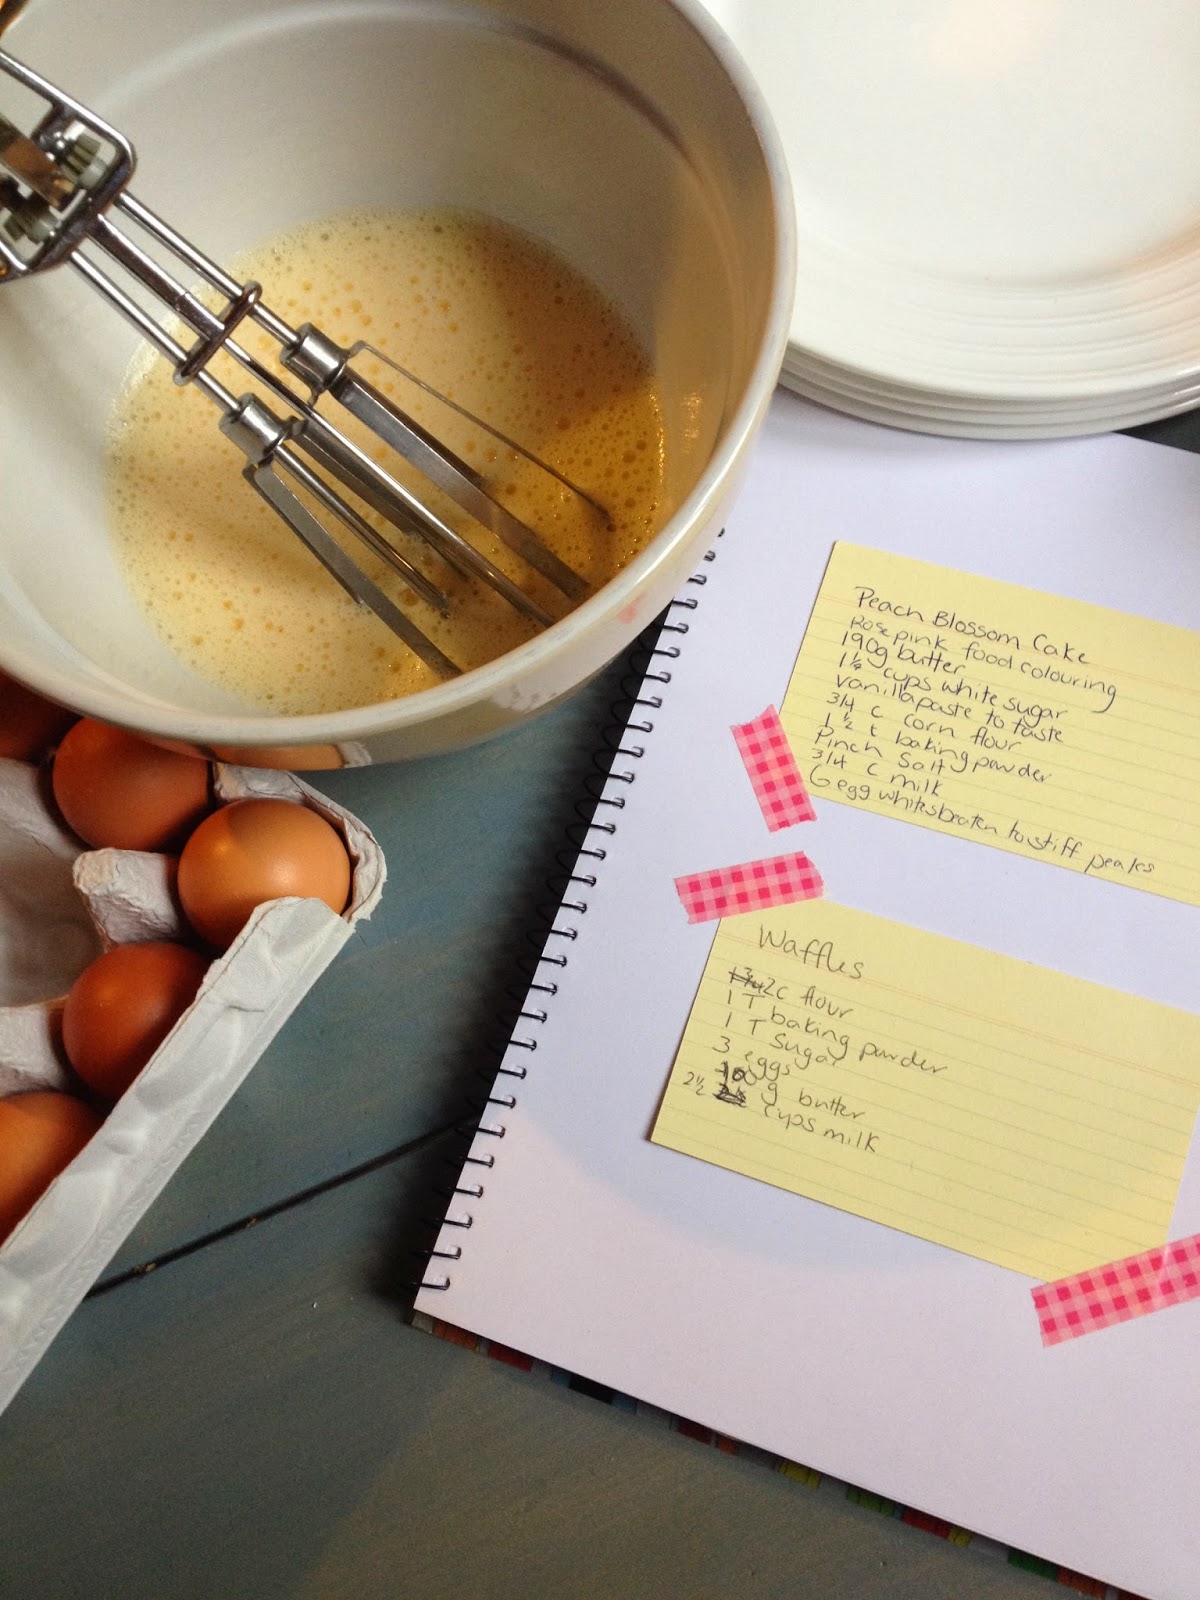 Peach Blossom Cake
Rose pink food colouring
190g butter
1 1/4 cups white sugar
vanilla paste to taste
3/4 c corn flour
1 1/2 t baking powder
Pinch Salt
3/4 c milk
6 egg whites beaten to stiff peaks
Waffles
2c flour
1 T baking powder
1 T Sugar
3 eggs
100 g butter
2 1/2 cups milk